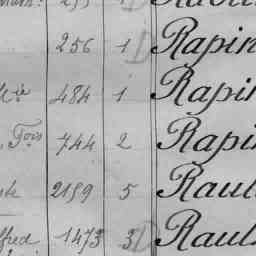 256 1 D Rapin
484 1 Rapin
Fois 744 2 Rapin
2189 5 Raul
lfred 1473 3 D Raul